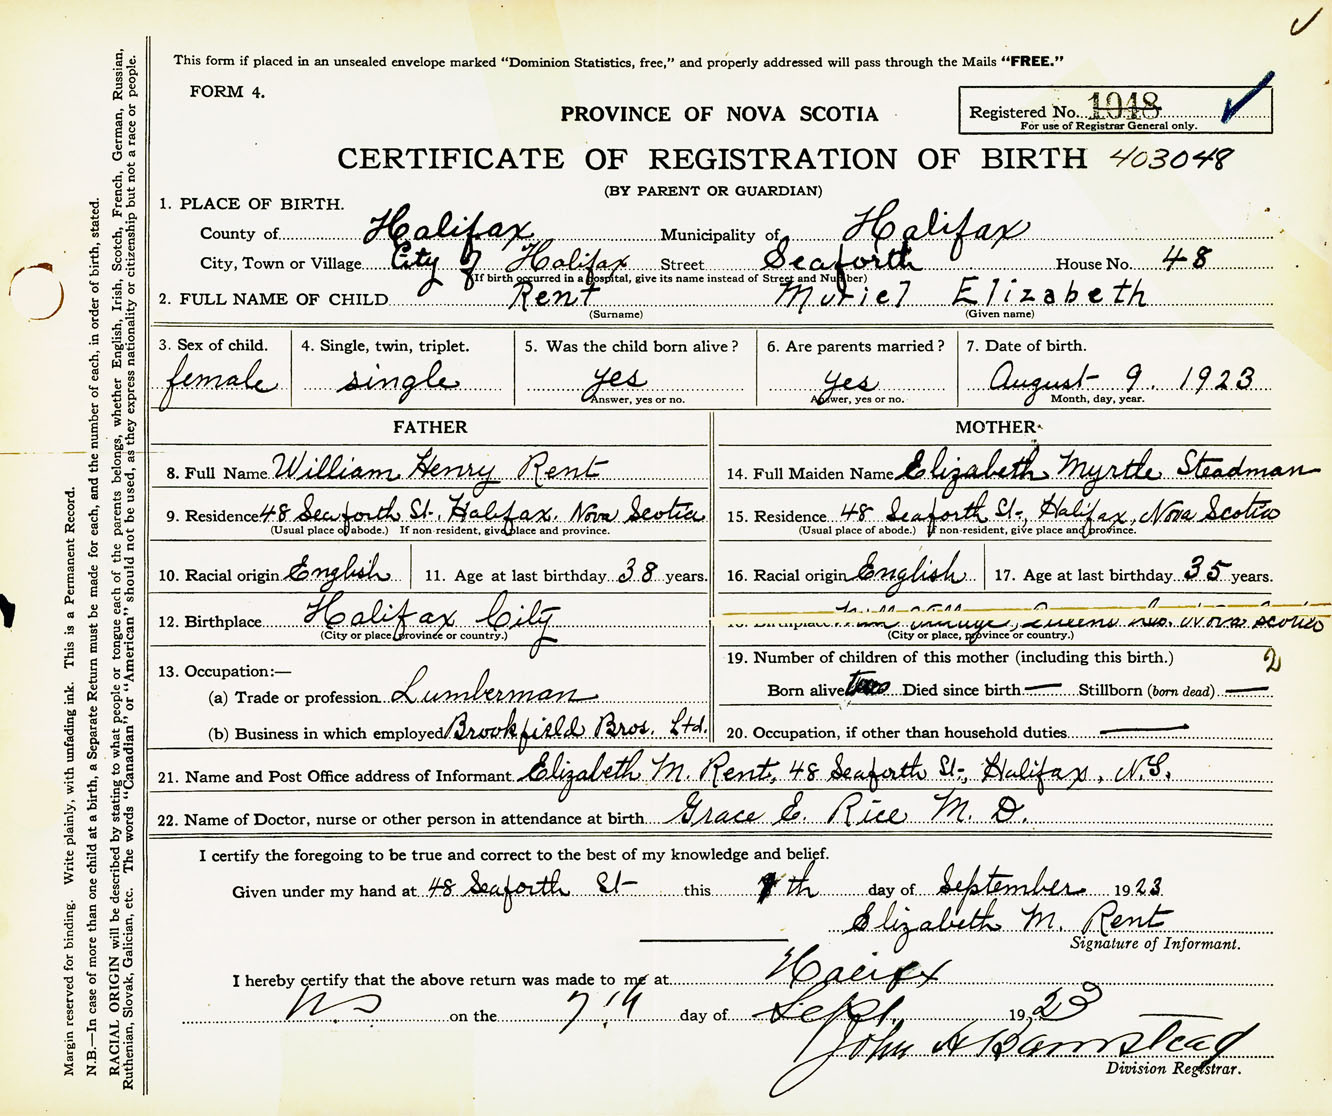 This form if placed in an unsealed envelope marked "Dominion Statistics, free," and properly addressed will pass through the Mails "FREE."
FORM 4.
PROVINCE OF NOVA SCOTIA
Registered No. 1048
For use of Registrar General only.
CERTIFICATE OF REGISTRATION OF BIRTH 403048
(BY PARENT OR GUARDIAN)
1. PLACE OF BIRTH.
County of Halifax Municipality of Halifax
City, Town or Village City of Halifax Street Seaforth House No. 48
(If birth occurred in a hospital, give its name instead of Street and Number)
2. FULL NAME OF CHILD Rent Muriel Elizabeth
(Surname) (Given name)
3. Sex of child. 4. Single, twin, triplet. 5. Was the child born alive? 6. Are parents married? 7. Date of birth.
female single yes yes August 9. 1923
Answer, yes or no. Answer, yes or no. Month, day, year.
FATHER MOTHER
8. Full Name William Henry Rent 14. Full Maiden Name Elizabeth Myrtle Steadman
9. Residence 48 Seaforth St. Halifax. Nova Scotia 15. Residence 48 Seaforth St., Halifax, Nova Scotia
(Usual place of abode.) If non-resident, give place and province. (Usual place of abode.) If non-resident, give place and province.
10. Racial origin English 11. Age at last birthday 38 years. 16. Racial origin English 17. Age at last birthday 35 years.
12. Birthplace Halifax City 18. Birthplace Village, Queens Co. Nova Scotia
(City or place, province or country.) (City or place, province or country.)
13. Occupation:— 19. Number of children of this mother (including this birth.) 2
(a) Trade or profession Lumberman Born alive Two Died since birth — Stillborn (born dead) —
(b) Business in which employed Brookfield Bros. Ltd. 20. Occupation, if other than household duties —
21. Name and Post Office address of Informant Elizabeth M. Rent, 48 Seaforth St., Halifax, N.S.
22. Name of Doctor, nurse or other person in attendance at birth Grace E. Rice M. D.
I certify the foregoing to be true and correct to the best of my knowledge and belief.
Given under my hand at 48 Seaforth St this 7th day of September 1923
Elizabeth M. Rent
Signature of Informant.
I hereby certify that the above return was made to me at Halifax
NS on the 7th day of Sept. 1923
John A Barnstead
Division Registrar.
Margin reserved for binding. Write plainly, with unfading ink. This is a Permanent Record.
N.B.—In case of more than one child at a birth, a Separate Return must be made for each, and the number of each, in order of birth, stated.
RACIAL ORIGIN will be described by stating to what people or tongue each of the parents belongs, whether English, Irish, Scotch, French, German, Russian,
Ruthenian, Slovak, Galician, etc. The words "Canadian" or "American" should not be used, as they express nationality or citizenship but not a race or people.